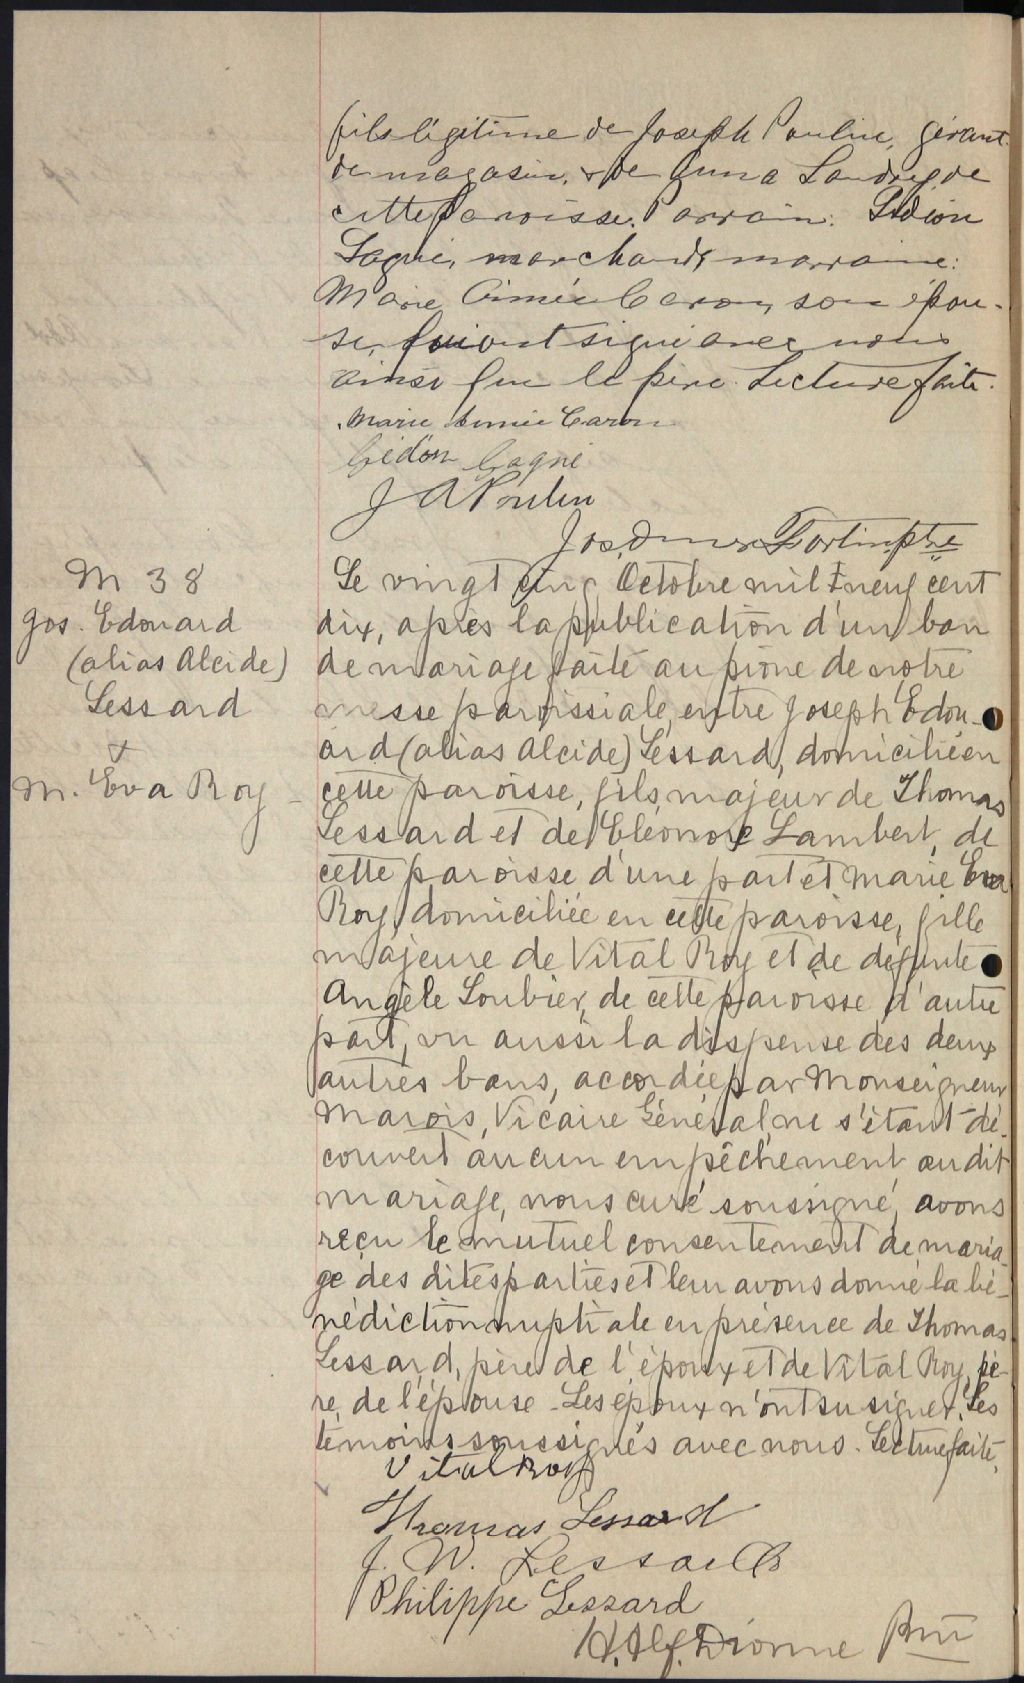 fils légitime de Joseph Poulin, gérant
de magasin, & de Anna Landry, de
cette Paroisse. Parrain: Gédéon
Gagné, marchand, marraine:
Marie Aimée Caron, son épou-
se, qui ont signé avec nous
ainsi que le père. Lecture faite.
Marie Aimée Caron
Gédéon Gagné
J A Poulin
Jos. Omer Fortin ptre
M 38
Jos. Edouard
(alias Alcide)
Lessard
+
M. Eva Roy
Le vingt cinq Octobre mil neuf cent
dix, après la publication d'un ban
de mariage faite au prône de notre
messe paroissiale, entre Joseph Edou-
ard (alias Alcide) Lessard, domicilié en
cette paroisse, fils majeur de Thomas
Lessard et de Eléonore Lambert, de
cette paroisse d'une part et Marie Eva
Roy, domiciliée en cette paroisse, fille
majeure de Vital Roy et de défunte
Angèle Loubier, de cette paroisse d'autre
part, vu aussi la dispense des deux
autres bans, accordée par Monseigneur
Marois, Vicaire Général, ne s'étant dé-
couvert aucun empêchement au dit
mariage, nous curé soussigné, avons
reçu le mutuel consentement de maria-
ge des dites parties et leur avons donné la bé-
nédiction nuptiale en présence de Thomas
Lessard, père de l'époux et de Vital Roy, pè-
re de l'épouse - Les époux n'ont su signer. Les
témoins soussignés avec nous. Lecture faite.
Vital Roy
Thomas Lessard
J. W. Lessard
Philippe Lessard
H. Alf. Dionne Ptre